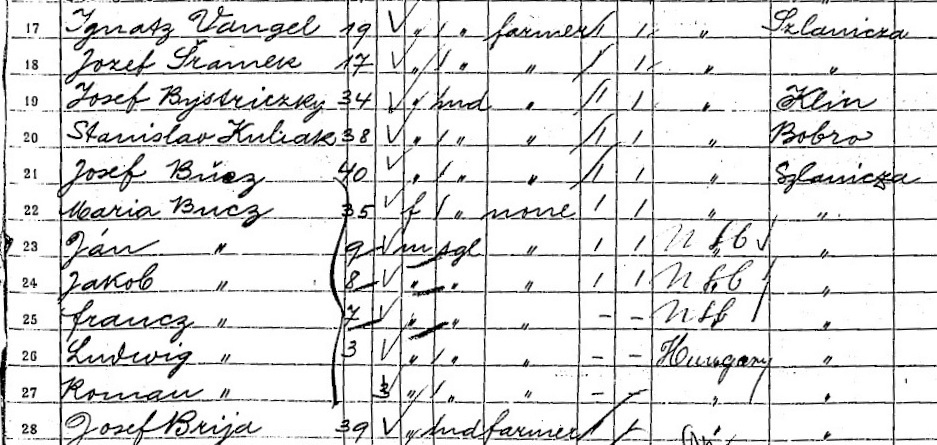 17 Ignatz Vangel 19 ✓ „ / „ farmer / / „ Szlanicza
18 Jozef Šramek 17 ✓ „ / „ „ / / „ „
19 Josef Bystriczky 34 ✓ „ md „ / / „ Klin
20 Stanislav Kuliak 38 ✓ „ / „ „ / / „ Bobro
21 Josef Bucz 40 ✓ „ / „ „ / / „ Szlanicza
22 Maria Bucz 35 ✓ f / „ none / / „ „
23 Ján „ 9 ✓ m sgl „ / / „
24 Jakob „ 8 ✓ „ „ „ / / „
25 francz „ 7 ✓ „ „ „ - - „
26 Ludwig „ 3 ✓ „ / „ „ - - Hungary „
27 Roman „ ✓ „ / „ „ - - „ „
28 Josef Brija 39 ✓ „ md farmer / / „